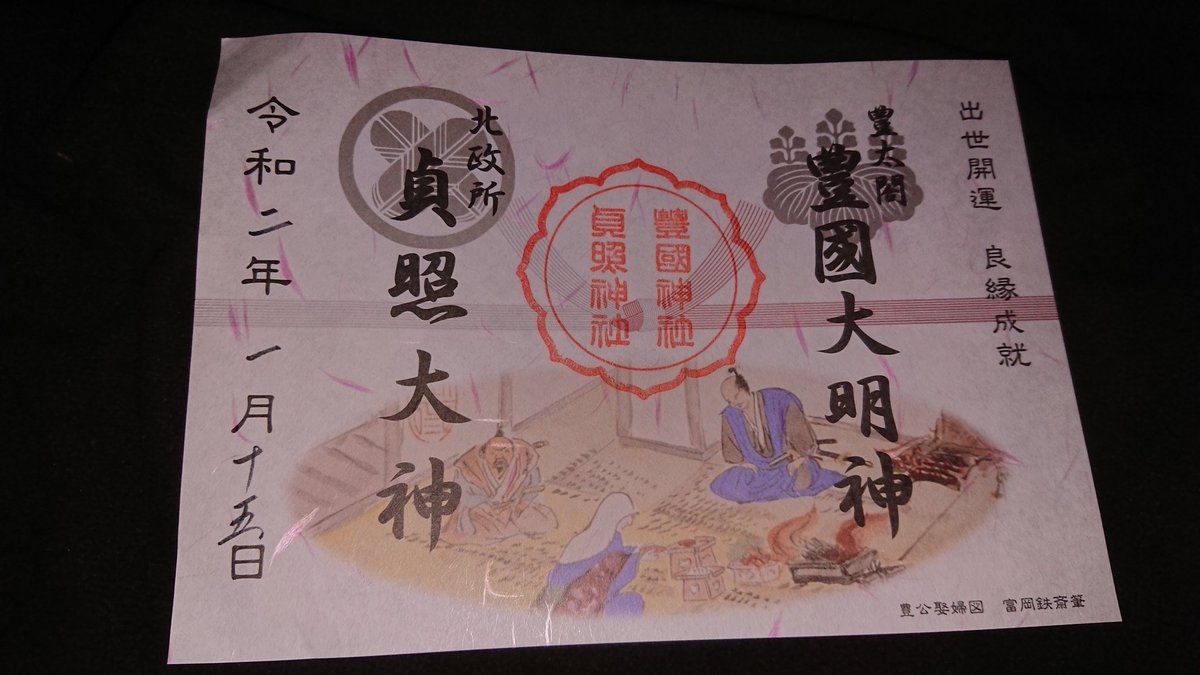 出世開運 良縁成就
豊太閤
豊國大明神
豐國神社
貞照神社
北政所
貞照大神
令和二年一月十五日
豊公娶婦図 富岡鉄斎筆